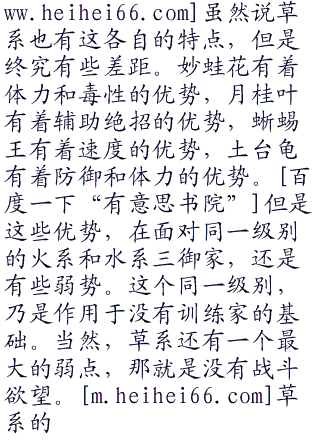 ww.heihei66.com]虽然说草
系也有这各自的特点，但是
终究有些差距。妙蛙花有着
体力和毒性的优势，月桂叶
有着辅助绝招的优势，蜥蜴
王有着速度的优势，土台龟
有着防御和体力的优势。[百
度一下“有意思书院”]但是
这些优势，在面对同一级别
的火系和水系三御家，还是
有些弱势。这个同一级别，
乃是作用于没有训练家的基
础。当然，草系还有一个最
大的弱点，那就是没有战斗
欲望。[m.heihei66.com]草
系的